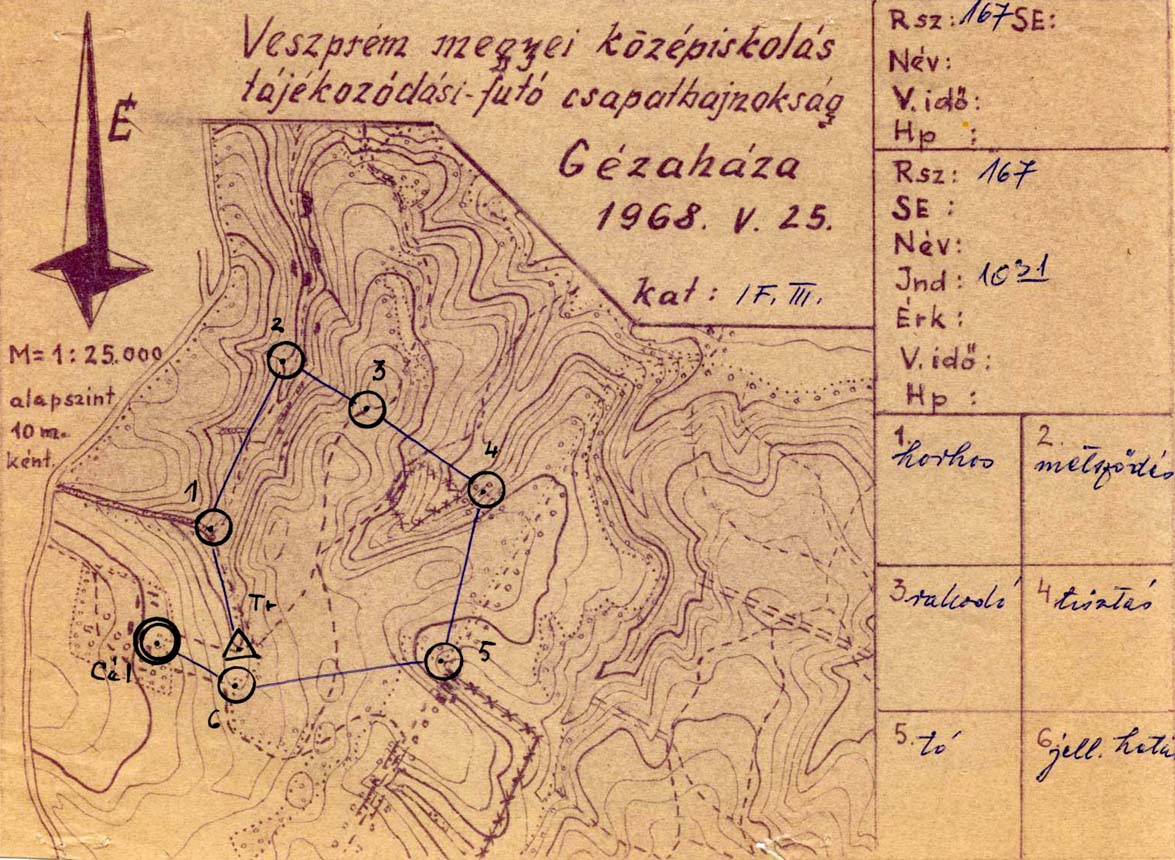 Veszprém megyei középiskolás
tájékozódási-futó csapatbajnokság
Gézaháza
1968. V. 25.
kat: IF. III.
É
M=1:25.000
alapszint
10 m.
ként.
2
3
4
1
Tr
Cél
5
6
Rsz: 167 SE:
Név:
V. idő:
Hp :
Rsz: 167
SE :
Név:
Ind : 10
Érk :
V. idő:
Hp :
1. horhos
2. mélyződés
3 rakodó
4 tisztás
5. tó
6. jell.